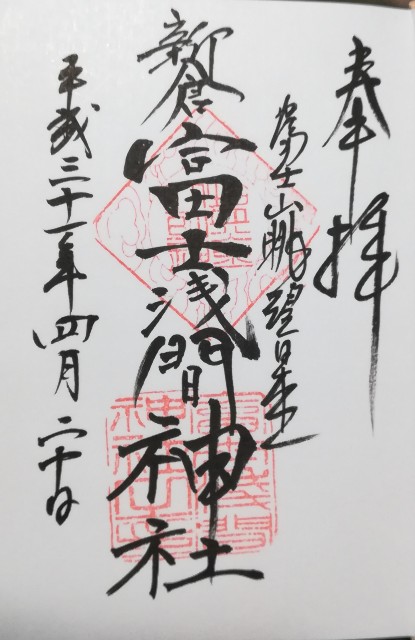 奉拝
富士山眺望日本一
新倉富士浅間神社
平成三十一年四月二十日